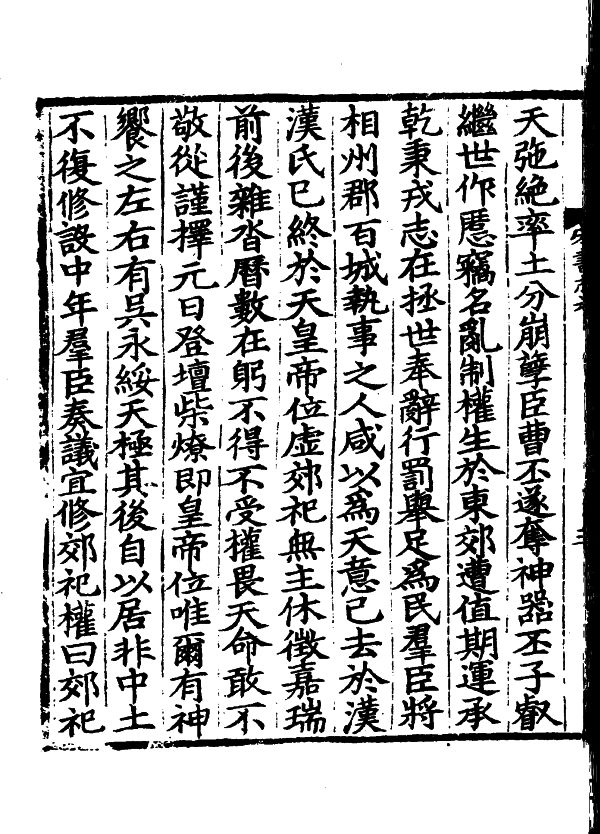 天弛絶率土分崩孽臣曹丕遂奪神器丕子叡
繼世作慝竊名亂制權生於東郊遭值期運承
乾秉戎志在拯世奉辭行罰舉足爲民羣臣將
相州郡百城執事之人咸以爲天意已去於漢
漢氏已終於天皇帝位虛郊祀無主休徵嘉瑞
前後雜沓曆數在躬不得不受權畏天命敢不
敬從謹擇元日登壇柴燎即皇帝位唯爾有神
饗之左右有吳永綏天極其後自以居非中土
不復修設中年羣臣奏議宜修郊祀權曰郊祀